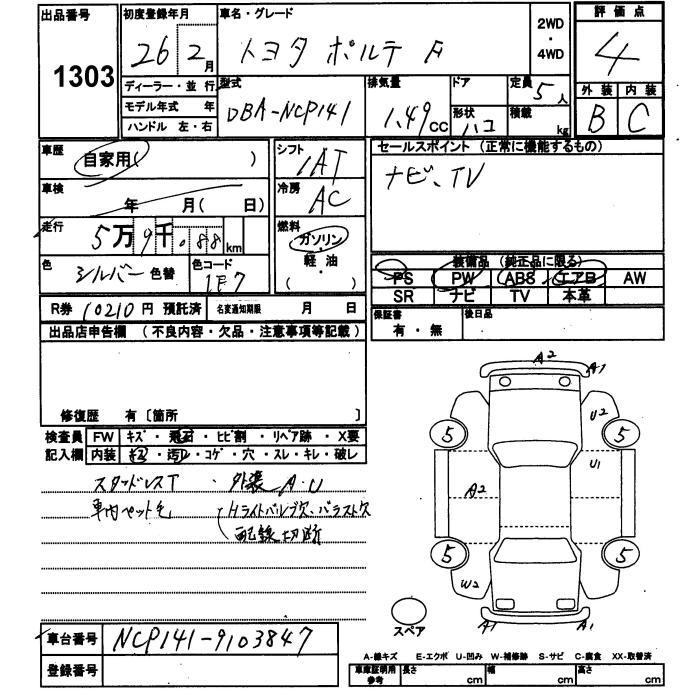 出品番号 初度登録年月 車名・グレード 評価点
1303 26年2月 トヨタ ポルテ F 2WD・4WD 4
ディーラー・並行 型式 排気量 ドア 定員 5人 外装 内装
モデル年式 年 DBA-NCP141 1.49CC 形状 ハコ 積載 kg B C
ハンドル 左・右
車歴 自家用( ) シフト IAT セールスポイント (正常に機能するもの)
車検 年 月( 日) 冷房 AC ナビ、TV
走行 5万9千.88km 燃料 ガソリン・軽・油 ( )
装備品 (純正品に限る)
色 シルバー 色替 色コード 1E7 PS PW ABS エアB AW
SR ナビ TV 本革
R券 10210円 預託済 名変通知期限 月 日 保証書 有・無 後日品
出品店申告欄 (不良内容・欠品・注意事項等記載)
修復歴 有〔箇所 〕
検査員 FW キズ・飛石・ヒビ割・リペア跡・X要
記入欄 内装 キズ・汚レ・コゲ・穴・スレ・キレ・破レ
スタッドレスT ・外装A・U
車内ペット毛 Hライトバルブ欠、バラスト欠
配線切断
A2 A1
U2
5 5
U1
A2
5 5
W2
スペア A1 A1
車台番号 NCP141-9103847
登録番号
A-線キズ E-エクボ U-凹み W-補修跡 S-サビ C-腐食 XX-取替済
車庫証明用参考 長さ cm 幅 cm 高さ cm